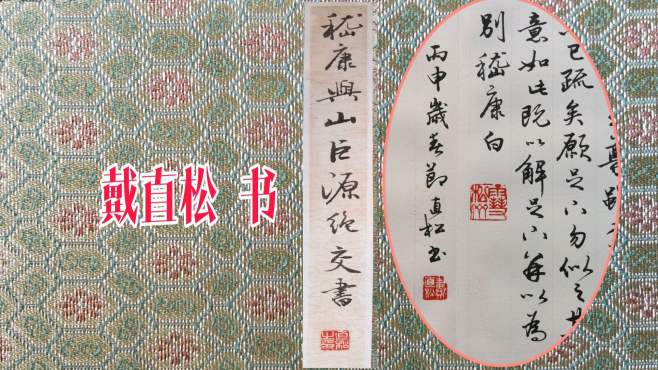 戴直松 书
嵇康與山巨源絶交書
已疏矣願足下勿似之其
意如此既以解足下并以為
别嵇康白
丙申歲春節直松書